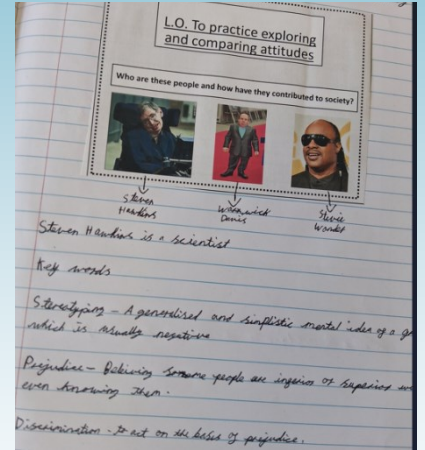 L.O. To practice exploring
and comparing attitudes
Who are these people and how have they contributed to society?
Steven
Hawkins
Warwick
Davis
Stevie
Wonder
Steven Hawkins is a scientist
Key words
Stereotyping - A generalised and simplistic mental idea of a
which is usually negative
Prejudice - Believing some people are inferior or superior
even knowing them.
Discrimination - to act on the basis of prejudice.